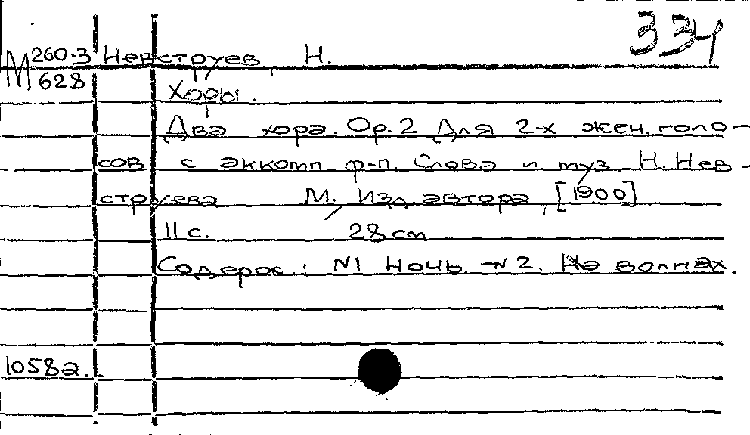 334
М 260-3 Невструев, Н.
628
Хоры.
Два хора. Ор.2 Для 2-х жен. голо-
сов с аккомп ф-п. Слова и муз. Н. Нев-
струева М., Изд. автора, [1900]
11 с. 28 см
Содерж.: N1 Ночь. -N2. На волнах.
10582.